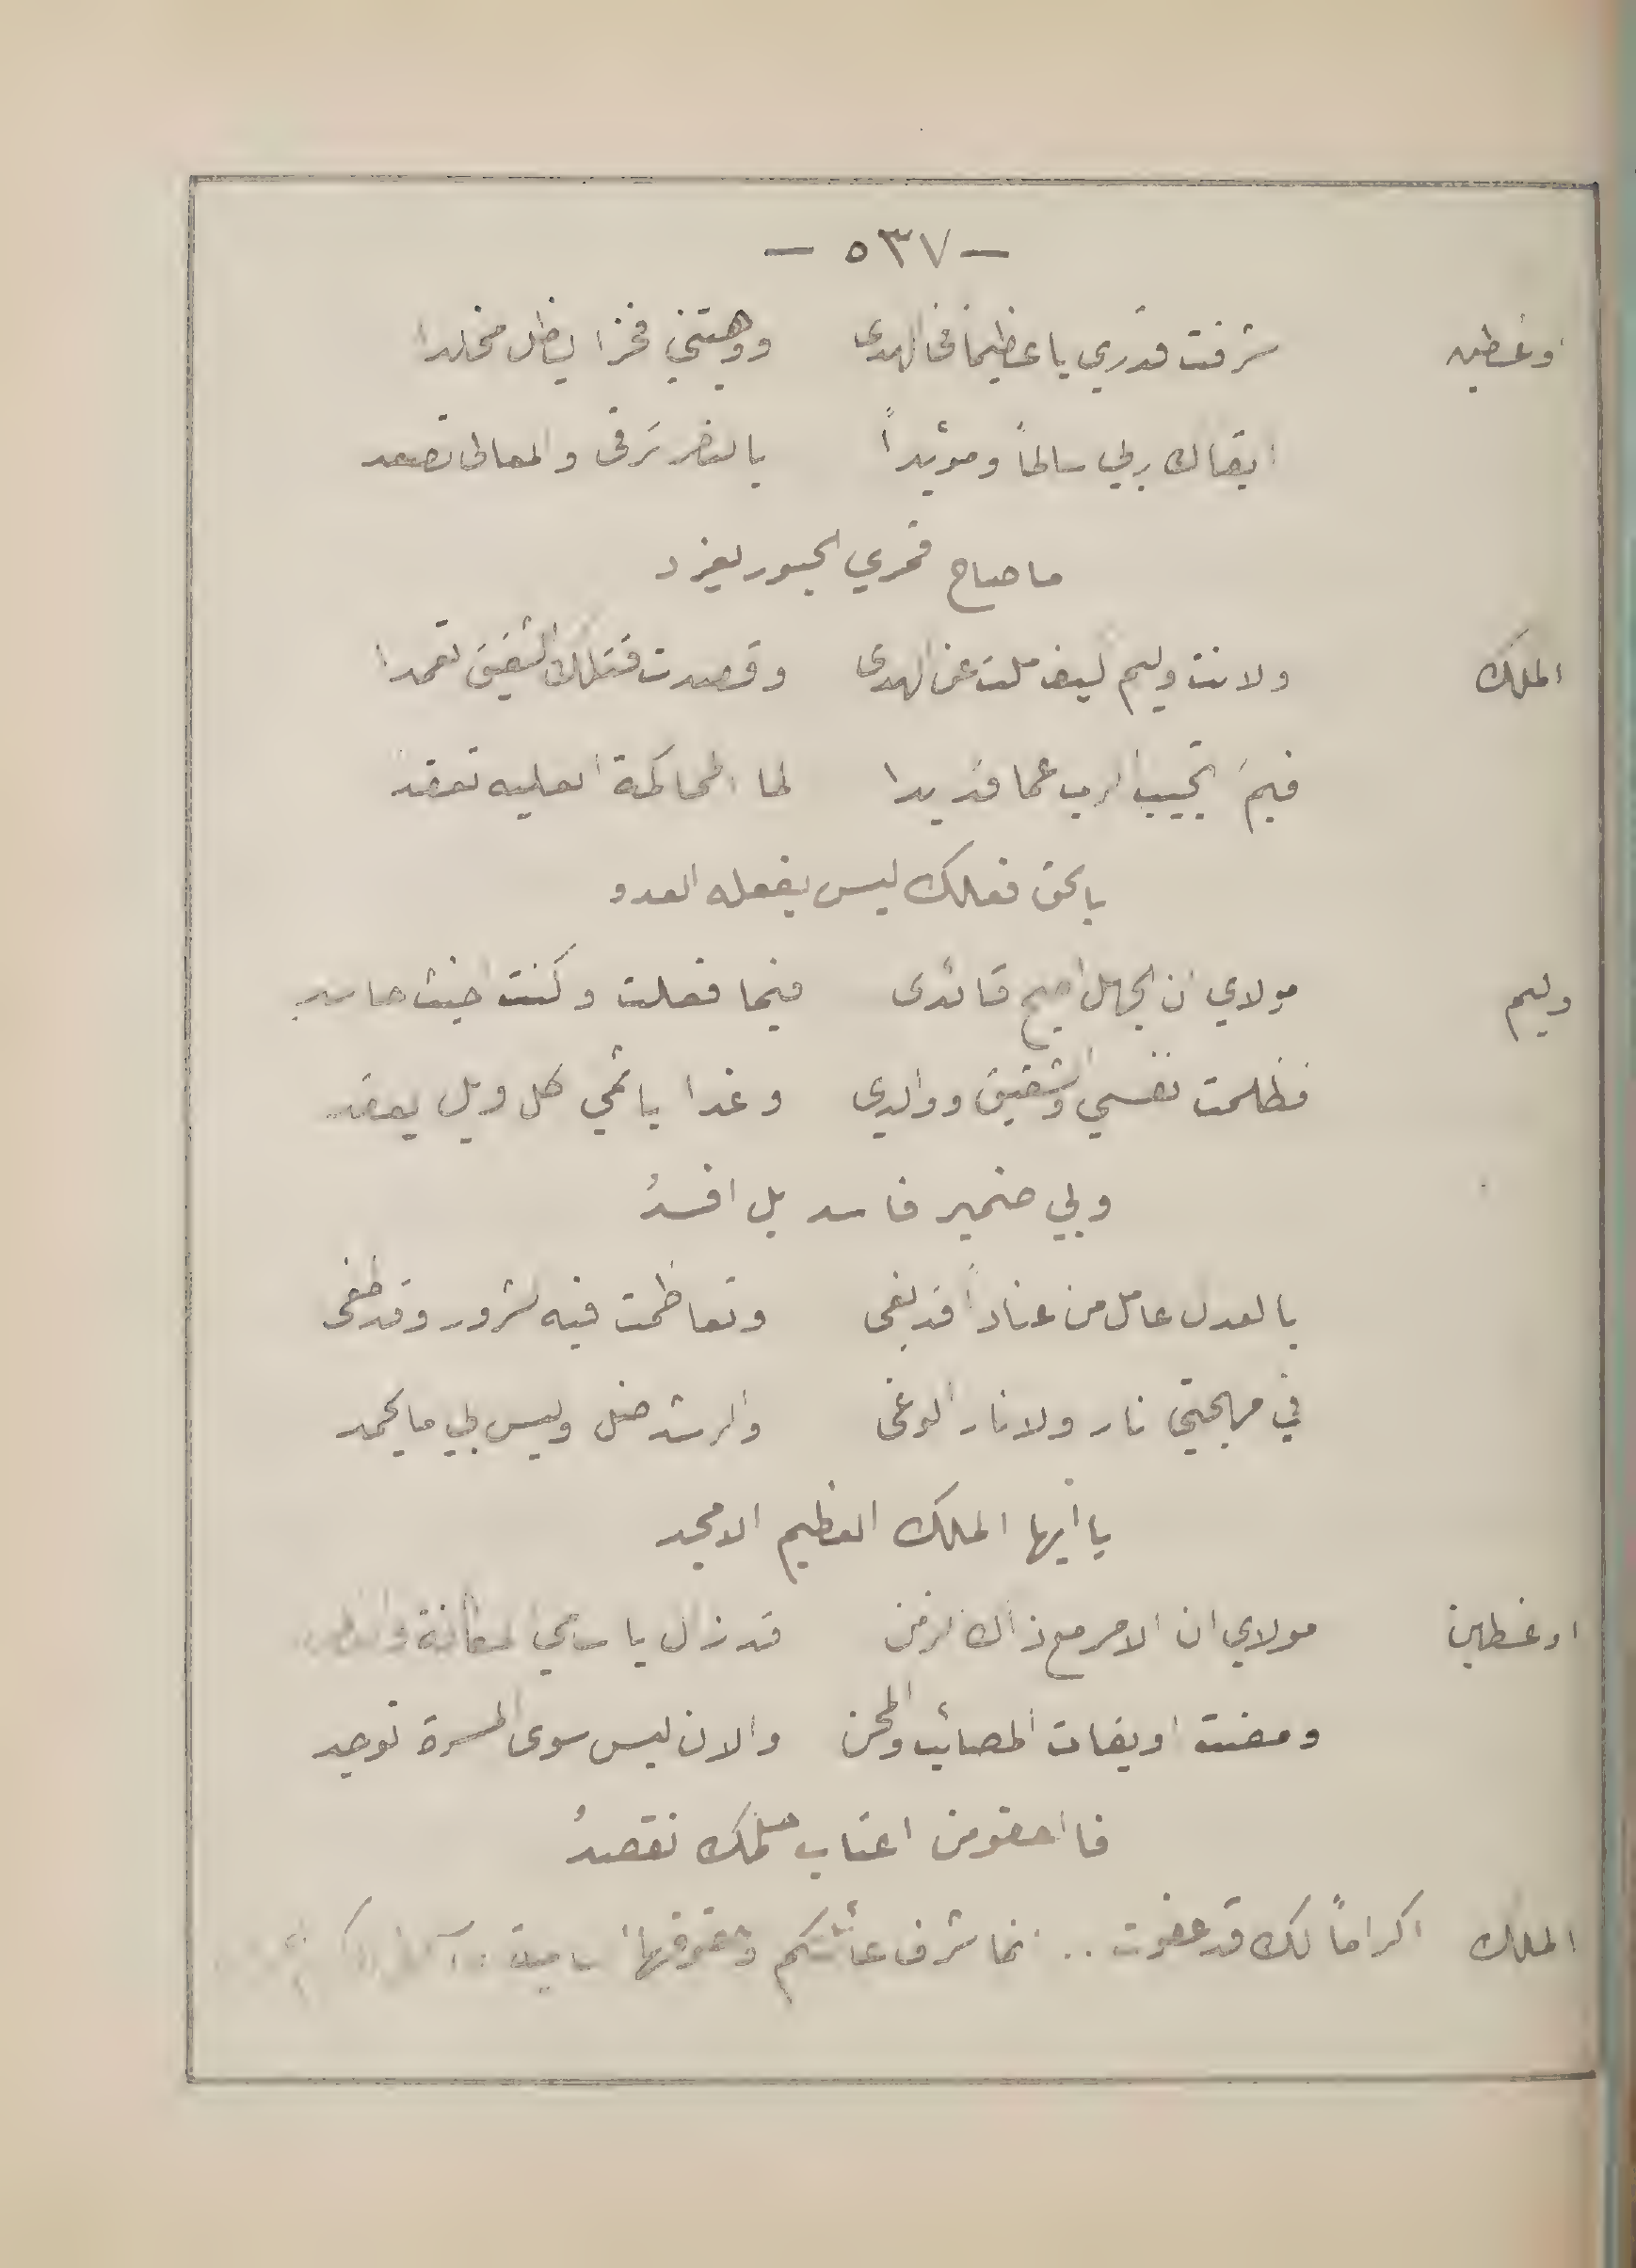 — ٥٣٧ —
اوغسطين شرفت قدري يا عظيما في الهدى ووهبتني فخرا يظل مخلدا
ابقاك ربي سالماً ومؤيداً بالنصر ترقى والمعالي تصعد
ما صاح قمري الحبور يغرد
الملك ولانت وليم كيف ملت عن الهدى وقصدت قتلك الشقيق تعمدا
فبمَ تجيب الرب عما قد بدا لما المحاكمة العليه تعقد
بالحق فعلك ليس يفعله العدو
وليم مولاي ان الجهل اصبح قائدى فيما فعلت وكنت اخبث حاسد
فظلمت نفسي والشقيق ووالدي وغدا باثمي كل ويل يعقد
وبي ضمير فاسد بل افسدُ
بالعدل عامل من عناداً قد بغى وتعاظمت فيه لشرور وقد طغى
في مهجتي نار ولا نار الوغى والرشد ضل وليس لي ما يحمد
يا أيها الملك العظيم الامجد
اوغسطين مولاي ان الامر مع ذاك الزمن قد زال يا سامي المكانة
ومضت اويقات المصائب والمحن والان ليس سوى المسرة توجد
فالعفو من اعتاب حلمك نقصدُ
الملك اكراماً لك قد عفوت .. انما شرف عائلتكم وحقوقها سامية